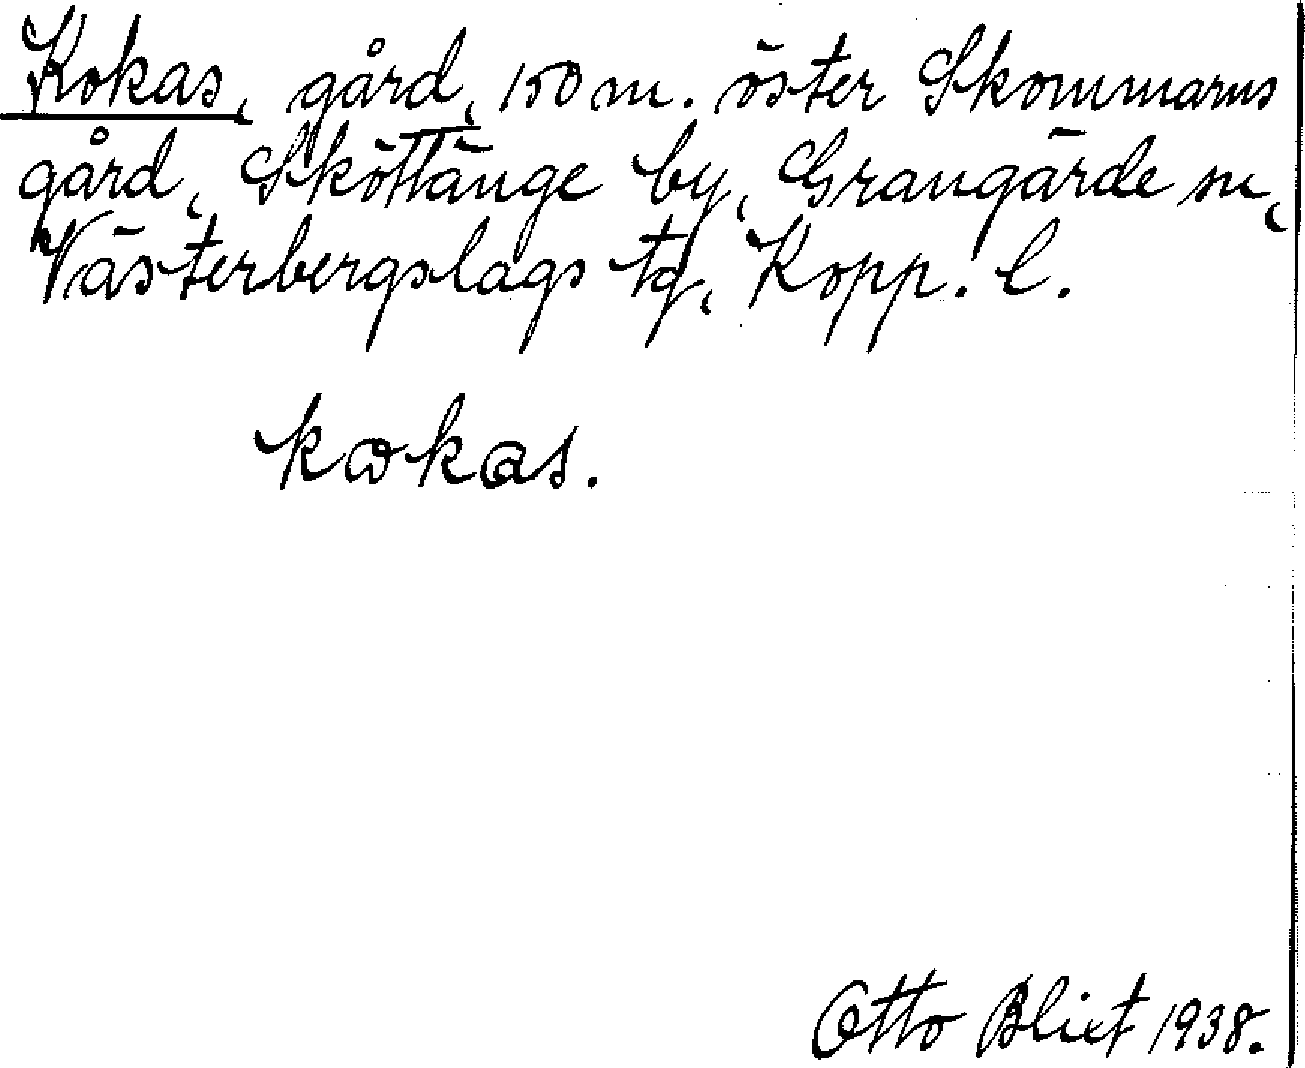 Kokas, gård, 150 m. öster Skommarns
gård, Sköttänge by, Grangärde sn,
Västerbergslags tg, Kopp. l.
kωkas.
Otto Blixt 1938.